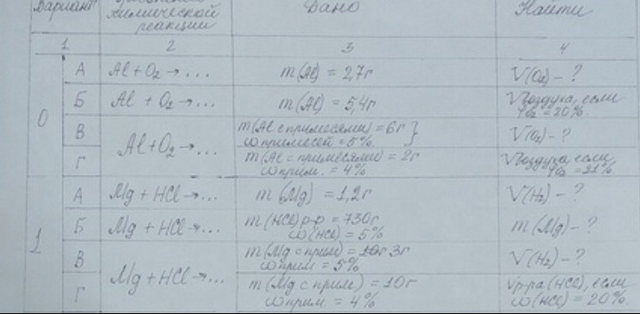 Вариант
химической
реакции
Дано
Найти
1 2 3 4
0
А Al + O₂ → ... m(Al) = 2,7г V(O₂) - ?
Б Al + O₂ → ... m(Al) = 5,4г Vвоздуха, если
φO₂ = 20%
В Al + O₂ → ... m(Al с примесями) = 6г }
ω примесей = 5% V(O₂) - ?
Г m(Al с примесями) = 2г Vвоздуха, если
ω прим. = 4% φO₂ = 21%
1
А Mg + HCl → ... m(Mg) = 1,2г V(H₂) - ?
Б Mg + HCl → ... m(HCl) р-р = 730г m(Mg) - ?
ω(HCl) = 5%
В Mg + HCl → ... m(Mg с прим) = 3г V(H₂) - ?
ω прим = 5%
Г m(Mg с прим) = 10г Vр-ра (HCl), если
ω прим. = 4% ω(HCl) = 20%